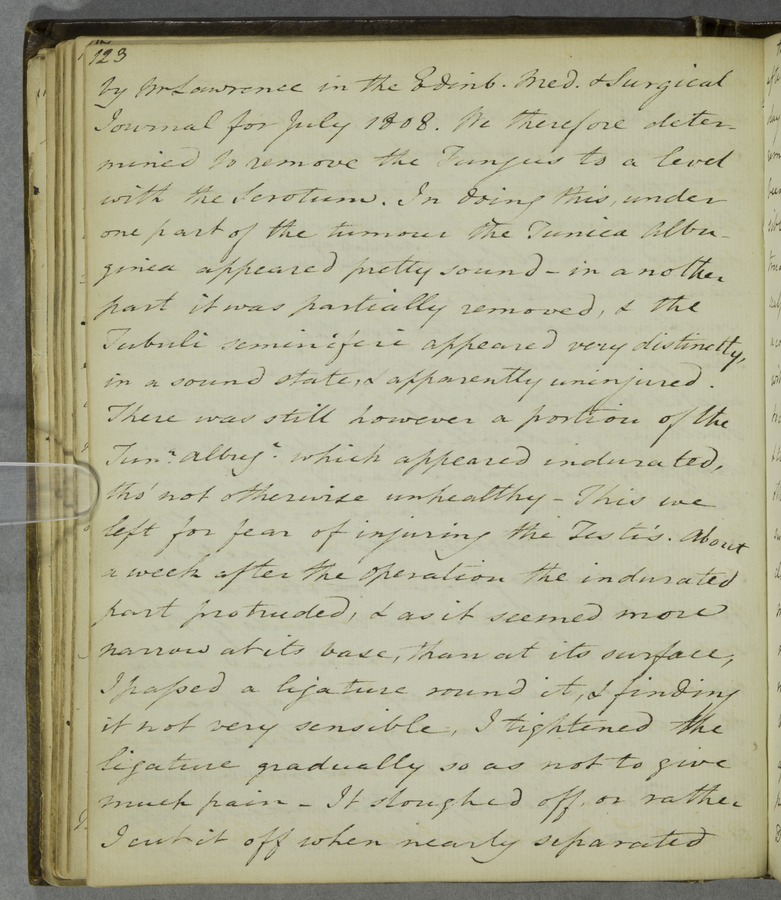 123
by Mr Lawrence in the Edinb. Med. & Surgical
Journal for July 1808. We therefore deter-
mined to remove the Fungus to a level
with the Scrotum. In doing this, under
one part of the tumour the Tunica Albu-
ginea appeared pretty sound - in another
part it was partially removed, & the
Tubuli seminiferi appeared very distinctly,
in a sound state, & apparently uninjured.
There was still however a portion of the
Tunᵃ. Albugᵃ. which appeared indurated,
tho' not otherwise unhealthy - This we
left for fear of injuring the Testis. About
a week after the operation the indurated
part protruded, & as it seemed more
narrow at its base, than at its surface,
I passed a ligature round it, & finding
it not very sensible, I tightened the
ligature gradually so as not to give
much pain - It sloughed off, or rather
I cut it off when nearly separated